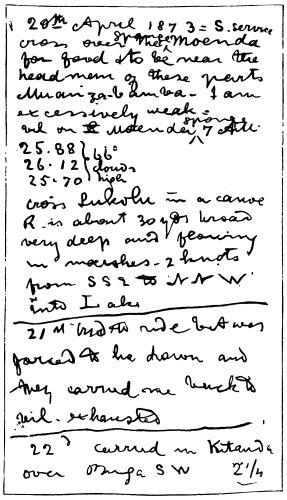 20th April 1873 = S. service
cross over sponge the Moenda
for food & to be near the
headmen of these parts
Muanzabamba - I am
excessively weak =
vil on Moenda sponge 7 A.M.
25.88
26.12 66° clouds
25.70 high
cross Lukolu in a canoe
R. is about 30 yds broad
very deep and flowing
in marshes - 2 knots
from SSE to NNW
into Lake
21st tried to ride but was
forced to lie down and
they carried me back to
vil. exhausted
22d carried in Kitanda
over Buga S W 2¼